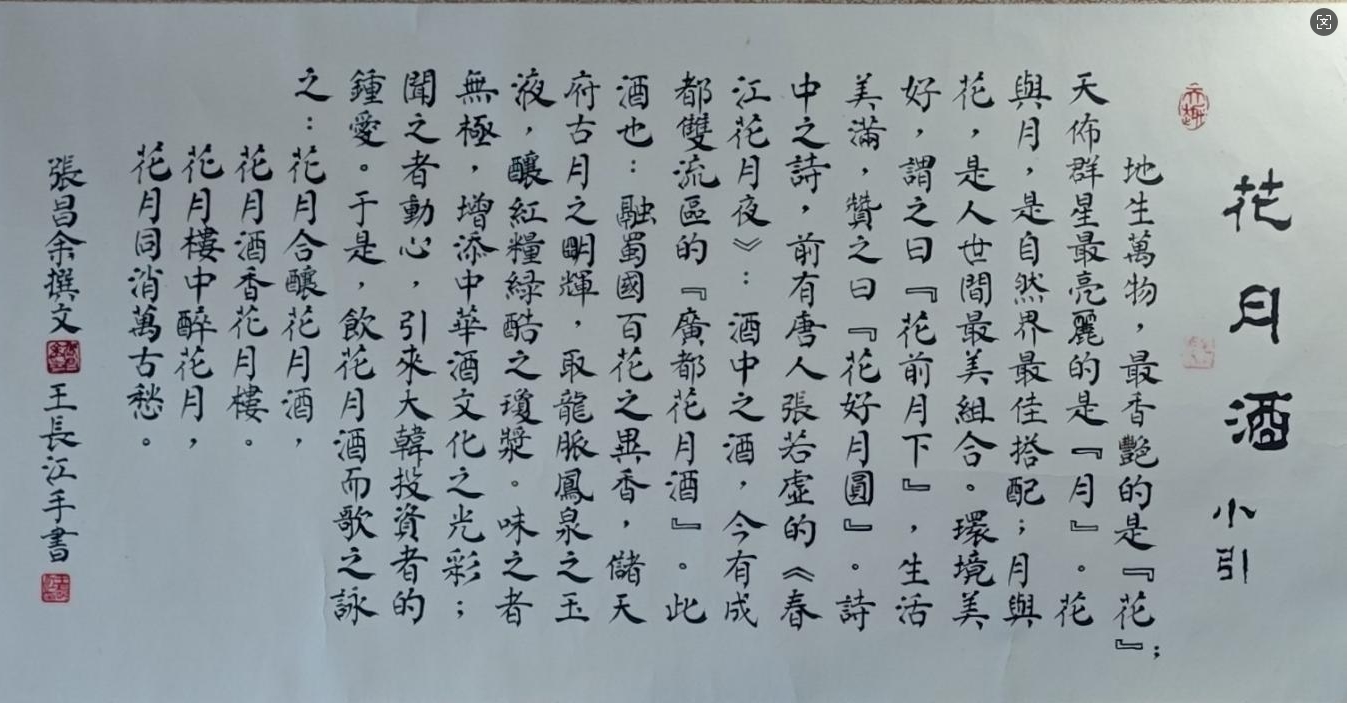 花月酒小引
地生萬物，最香艷的是『花』；
天佈群星最亮麗的是『月』。花
與月，是自然界最佳搭配；月與
花，是人世間最美組合。環境美
好，謂之曰『花前月下』，生活
美滿，贊之曰『花好月圓』。詩
中之詩，前有唐人張若虛的《春
江花月夜》：酒中之酒，今有成
都雙流區的『廣都花月酒』。此
酒也：融蜀國百花之異香，儲天
府古月之明輝，取龍脈鳳泉之玉
液，釀紅糧緑酷之瓊漿。味之者
無極，增添中華酒文化之光彩；
聞之者動心，引來大韓投資者的
鍾愛。于是，飲花月酒而歌之詠
之：花月合釀花月酒，
花月酒香花月樓。
花月樓中醉花月，
花月同消萬古愁。
張昌余撰文 王長江手書